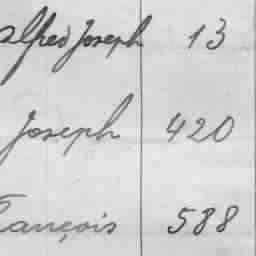 Alfred Joseph 13
Joseph 420
François 588